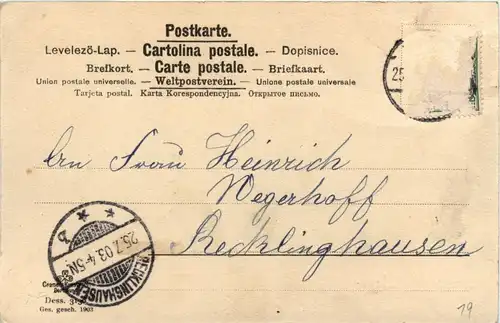 Postkarte.
Levelező-Lap. — Cartolina postale. — Dopisnice.
Brefkort. — Carte postale. — Briefkaart.
Union postale universelle. — Weltpostverein. — Unione postale universale
Tarjeta postal. Karta Korespondencyjna. Открытое письмо.
25.
An Frau Heinrich
Wegerhoff
Recklinghausen
RECKLINGHAUSEN
25.7.03.4-5N.
* * b
Dess.
Ges. gesch. 1903
19